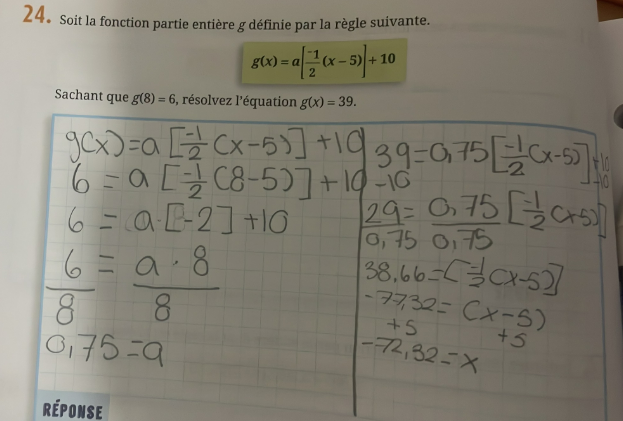 24. Soit la fonction partie entière g définie par la règle suivante.
g(x) = a[-1/2 (x – 5)] + 10
Sachant que g(8) = 6, résolvez l'équation g(x) = 39.
g(x) = a [-1/2 (x-5)] + 10
6 = a [-1/2 (8-5)] + 10
6 = a·[-2] + 10
6/8 = a · 8/8
0,75 = a
39 = 0,75 [-1/2 (x-5)] + 10
-10 -10
29/0,75 = 0,75/0,75 [-1/2 (x+5)]
38,66 = [-1/2 (x-5)]
-77,32 = (x-5)
+5 +5
-72,32 = x
RÉPONSE